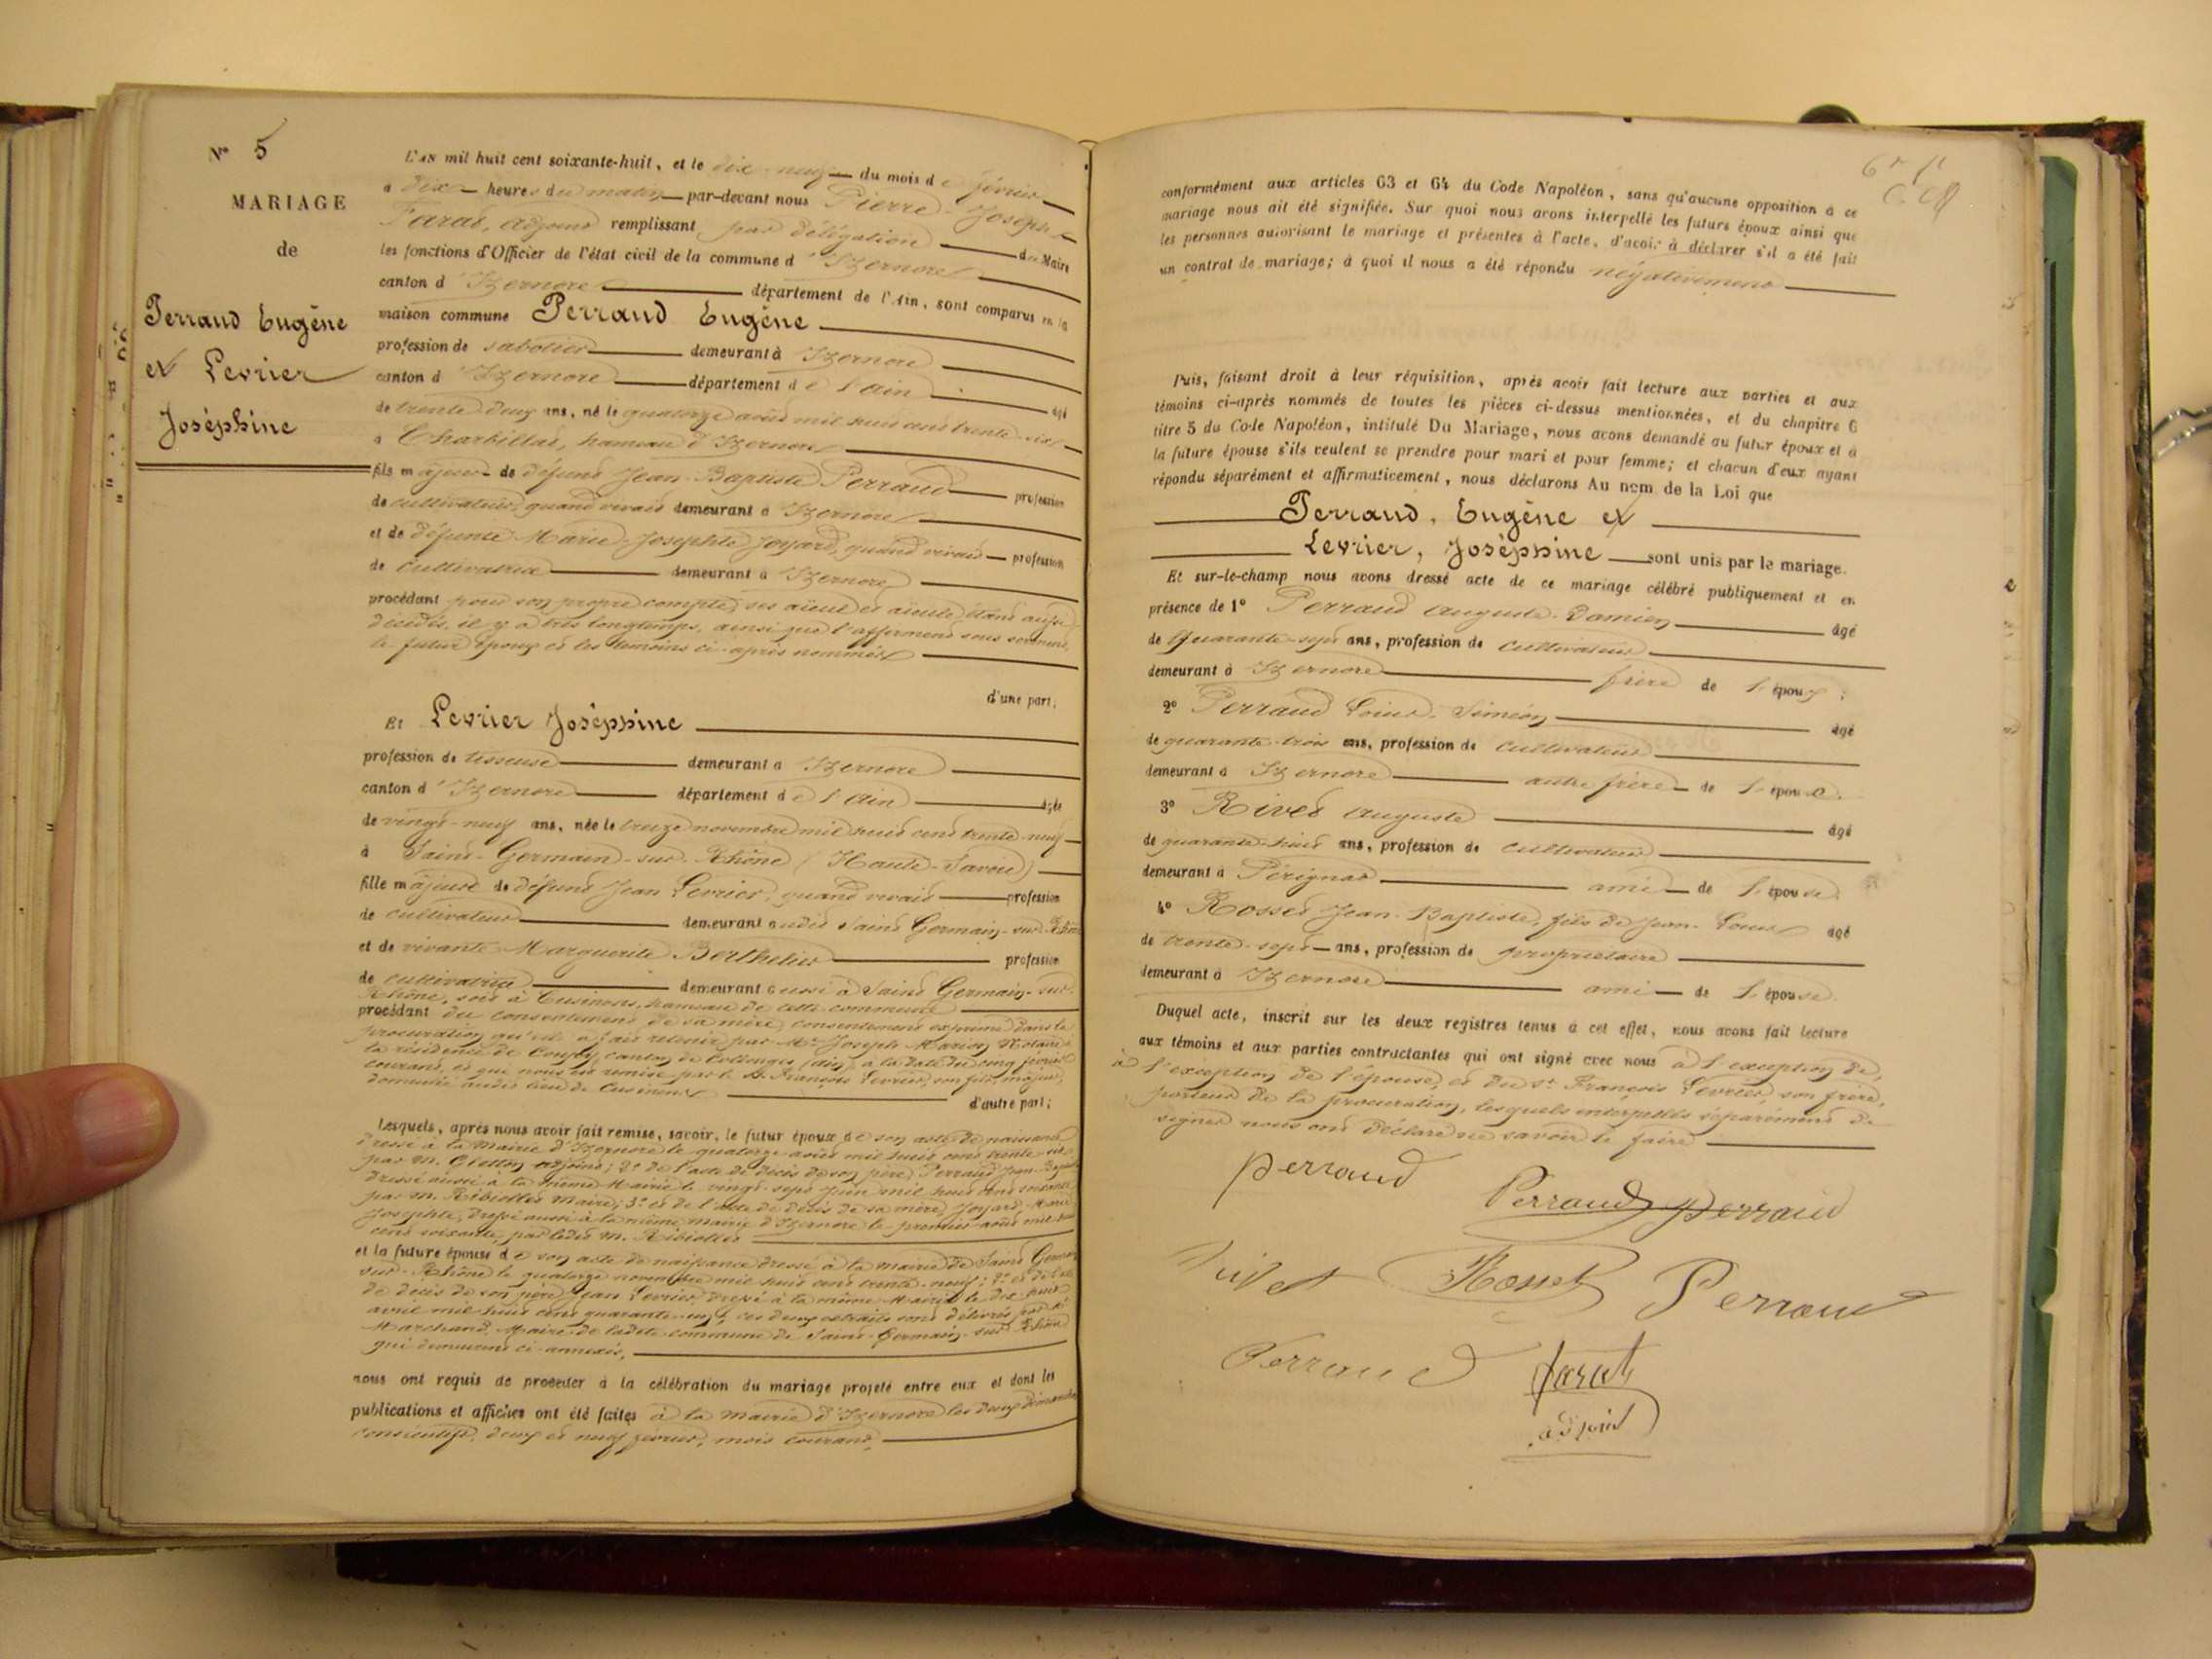 No 5
MARIAGE
de
Perraud Eugène
et Levrier
Joséphine
L'AN mil huit cent soixante-huit, et le dix-neuf du mois de février
à dix heures du matin par-devant nous Pierre-Joseph
Farat, adjoint remplissant par délégation du Maire
les fonctions d'Officier de l'état civil de la commune d'Izernore
canton d'Izernore département de l'Ain, sont comparus en la
maison commune Perraud Eugène
profession de sabotier demeurant à Izernore
canton d'Izernore département de l'Ain âgé
de trente-deux ans, né le quatorze août mil huit cent trente-six
à Charbillat, hameau d'Izernore
fils majeur de défunt Jean-Baptiste Perraud profession
de cultivateur, quand vivait demeurant à Izernore
et de défunte Marie-Josephte Joyard, quand vivait profession
de cultivatrice demeurant à Izernore
procédant pour son propre compte, ses aïeul et aïeule étant aussi
décédés, il y a très longtemps, ainsi que l'affirment sous serment,
le futur époux et les témoins ci-après nommés
d'une part;
Et Levrier Joséphine
profession de tisseuse demeurant à Izernore
canton d'Izernore département de l'Ain âgée
de vingt-neuf ans, née le treize novembre mil huit cent trente-neuf
à Saint-Germain-sur-Rhône (Haute-Savoie)
fille majeure de défunt Jean Levrier, quand vivait profession
de cultivateur demeurant audit Saint Germain-sur-Rhône
et de vivante Marguerite Berthelier profession
de cultivatrice demeurant aussi à Saint Germain-sur-
Rhône, soit à Cusinens, hameau de cette commune
procédant du consentement de sa mère, consentement exprimé dans la
procuration qu'elle a fait retenir par Me Joseph Marion Notaire à
la résidence de canton de Collonges (Ain), à la date du cinq février
courant, et que nous a remise par le Sr François Levrier, son fils majeur,
domicilié audit lieu de Cusinens
d'autre part;
Lesquels, après nous avoir fait remise, savoir, le futur époux de son acte de naissance
dressé à la Mairie d'Izernore le quatorze août mil huit cent trente-six
par M. adjoint; 2° de l'acte de décès de son père, Perraud Jean-Baptiste
dressé aussi à la même Mairie le vingt-sept juin mil huit cent soixante
par M. Ribiollet Maire; 3° et de l'acte de décès de sa mère, Joyard, Marie
Josephte, dressé aussi à la même mairie d'Izernore le premier août mil huit
cent soixante, par ledit M. Ribiollet
et la future épouse de son acte de naissance dressé à la mairie de Saint Germain
sur-Rhône le quatorze novembre mil huit cent trente-neuf; 2° et de l'acte
de décès de son père, Jean Levrier, dressé à la même Mairie le dix-huit
avril mil huit cent quarante-un, ces deux extraits sont délivrés par M.
Marchand, Maire de ladite commune de Saint-Germain-sur-Rhône
qui demeurent ci-annexés,
nous ont requis de procéder à la célébration du mariage projeté entre eux et dont les
publications et affiches ont été faites à la mairie d'Izernore les deux dimanches
consécutifs, deux et neuf février, mois courant,
conformément aux articles 63 et 64 du Code Napoléon, sans qu'aucune opposition à ce
mariage nous ait été signifiée. Sur quoi nous avons interpellé les futurs époux ainsi que
les personnes autorisant le mariage et présentes à l'acte, d'avoir à déclarer s'il a été fait
un contrat de mariage; à quoi il nous a été répondu négativement
Puis, faisant droit à leur réquisition, après avoir fait lecture aux parties et aux
témoins ci-après nommés de toutes les pièces ci-dessus mentionnées, et du chapitre 6
titre 5 du Code Napoléon, intitulé Du Mariage, nous avons demandé au futur époux et à
la future épouse s'ils veulent se prendre pour mari et pour femme; et chacun d'eux ayant
répondu séparément et affirmativement, nous déclarons Au nom de la Loi que
Perraud, Eugène et
Levrier, Joséphine sont unis par le mariage.
Et sur-le-champ nous avons dressé acte de ce mariage célébré publiquement et en
présence de 1° Perraud Auguste-Damien âgé
de quarante-sept ans, profession de cultivateur
demeurant à Izernore frère de l'époux;
2° Perraud Louis-Siméon âgé
de quarante-trois ans, profession de cultivateur
demeurant à Izernore autre frère de l'époux.
3° Rivet Auguste âgé
de quarante-huit ans, profession de cultivateur
demeurant à Pérignat ami de l'épouse
4° Rosset Jean-Baptiste, fils de Jean-Louis âgé
de trente-sept ans, profession de propriétaire
demeurant à Izernore ami de l'épouse.
Duquel acte, inscrit sur les deux registres tenus à cet effet, nous avons fait lecture
aux témoins et aux parties contractantes qui ont signé avec nous à l'exception de,
à l'exception de l'épouse, et du Sr François Levrier, son frère,
porteur de la procuration, lesquels interpellés séparément de
signer nous ont déclaré ne savoir le faire
perraud
Perraud perraud
Rivet Rosset Perraud
Perraud farat
adjoint